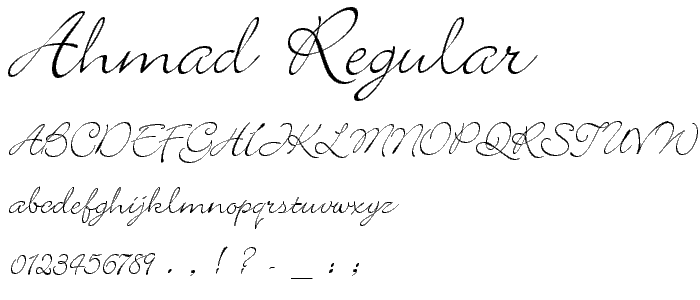 Ahmad Regular
ABCDEFGHIJKLMNOPQRSTUVW
abcdefghijklmnopqrstuvwxyz
0123456789 . , ! ? - _ : ;